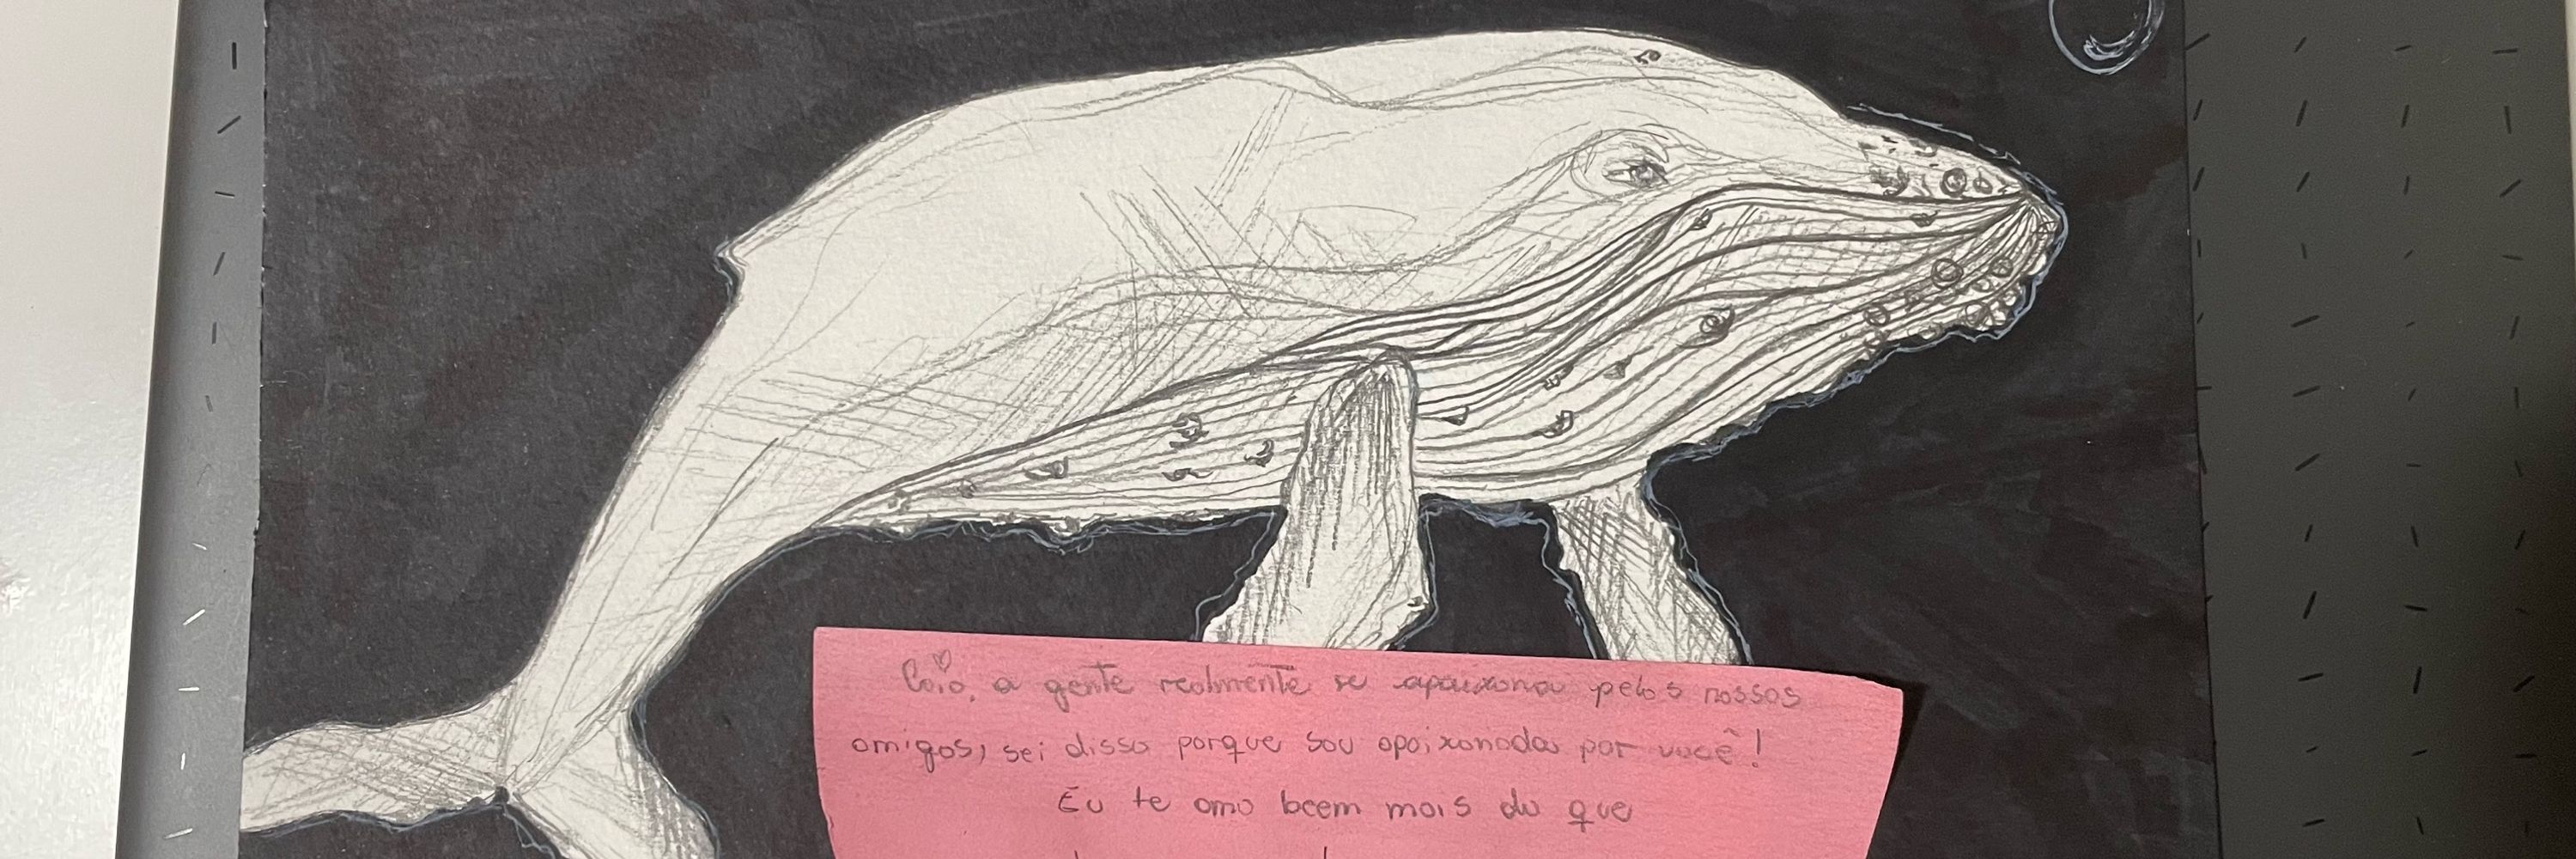 Caio, a gente realmente se apaixona pelos nossos
amigos, sei disso porque sou apaixonada por você!
Eu te amo beem mais do que